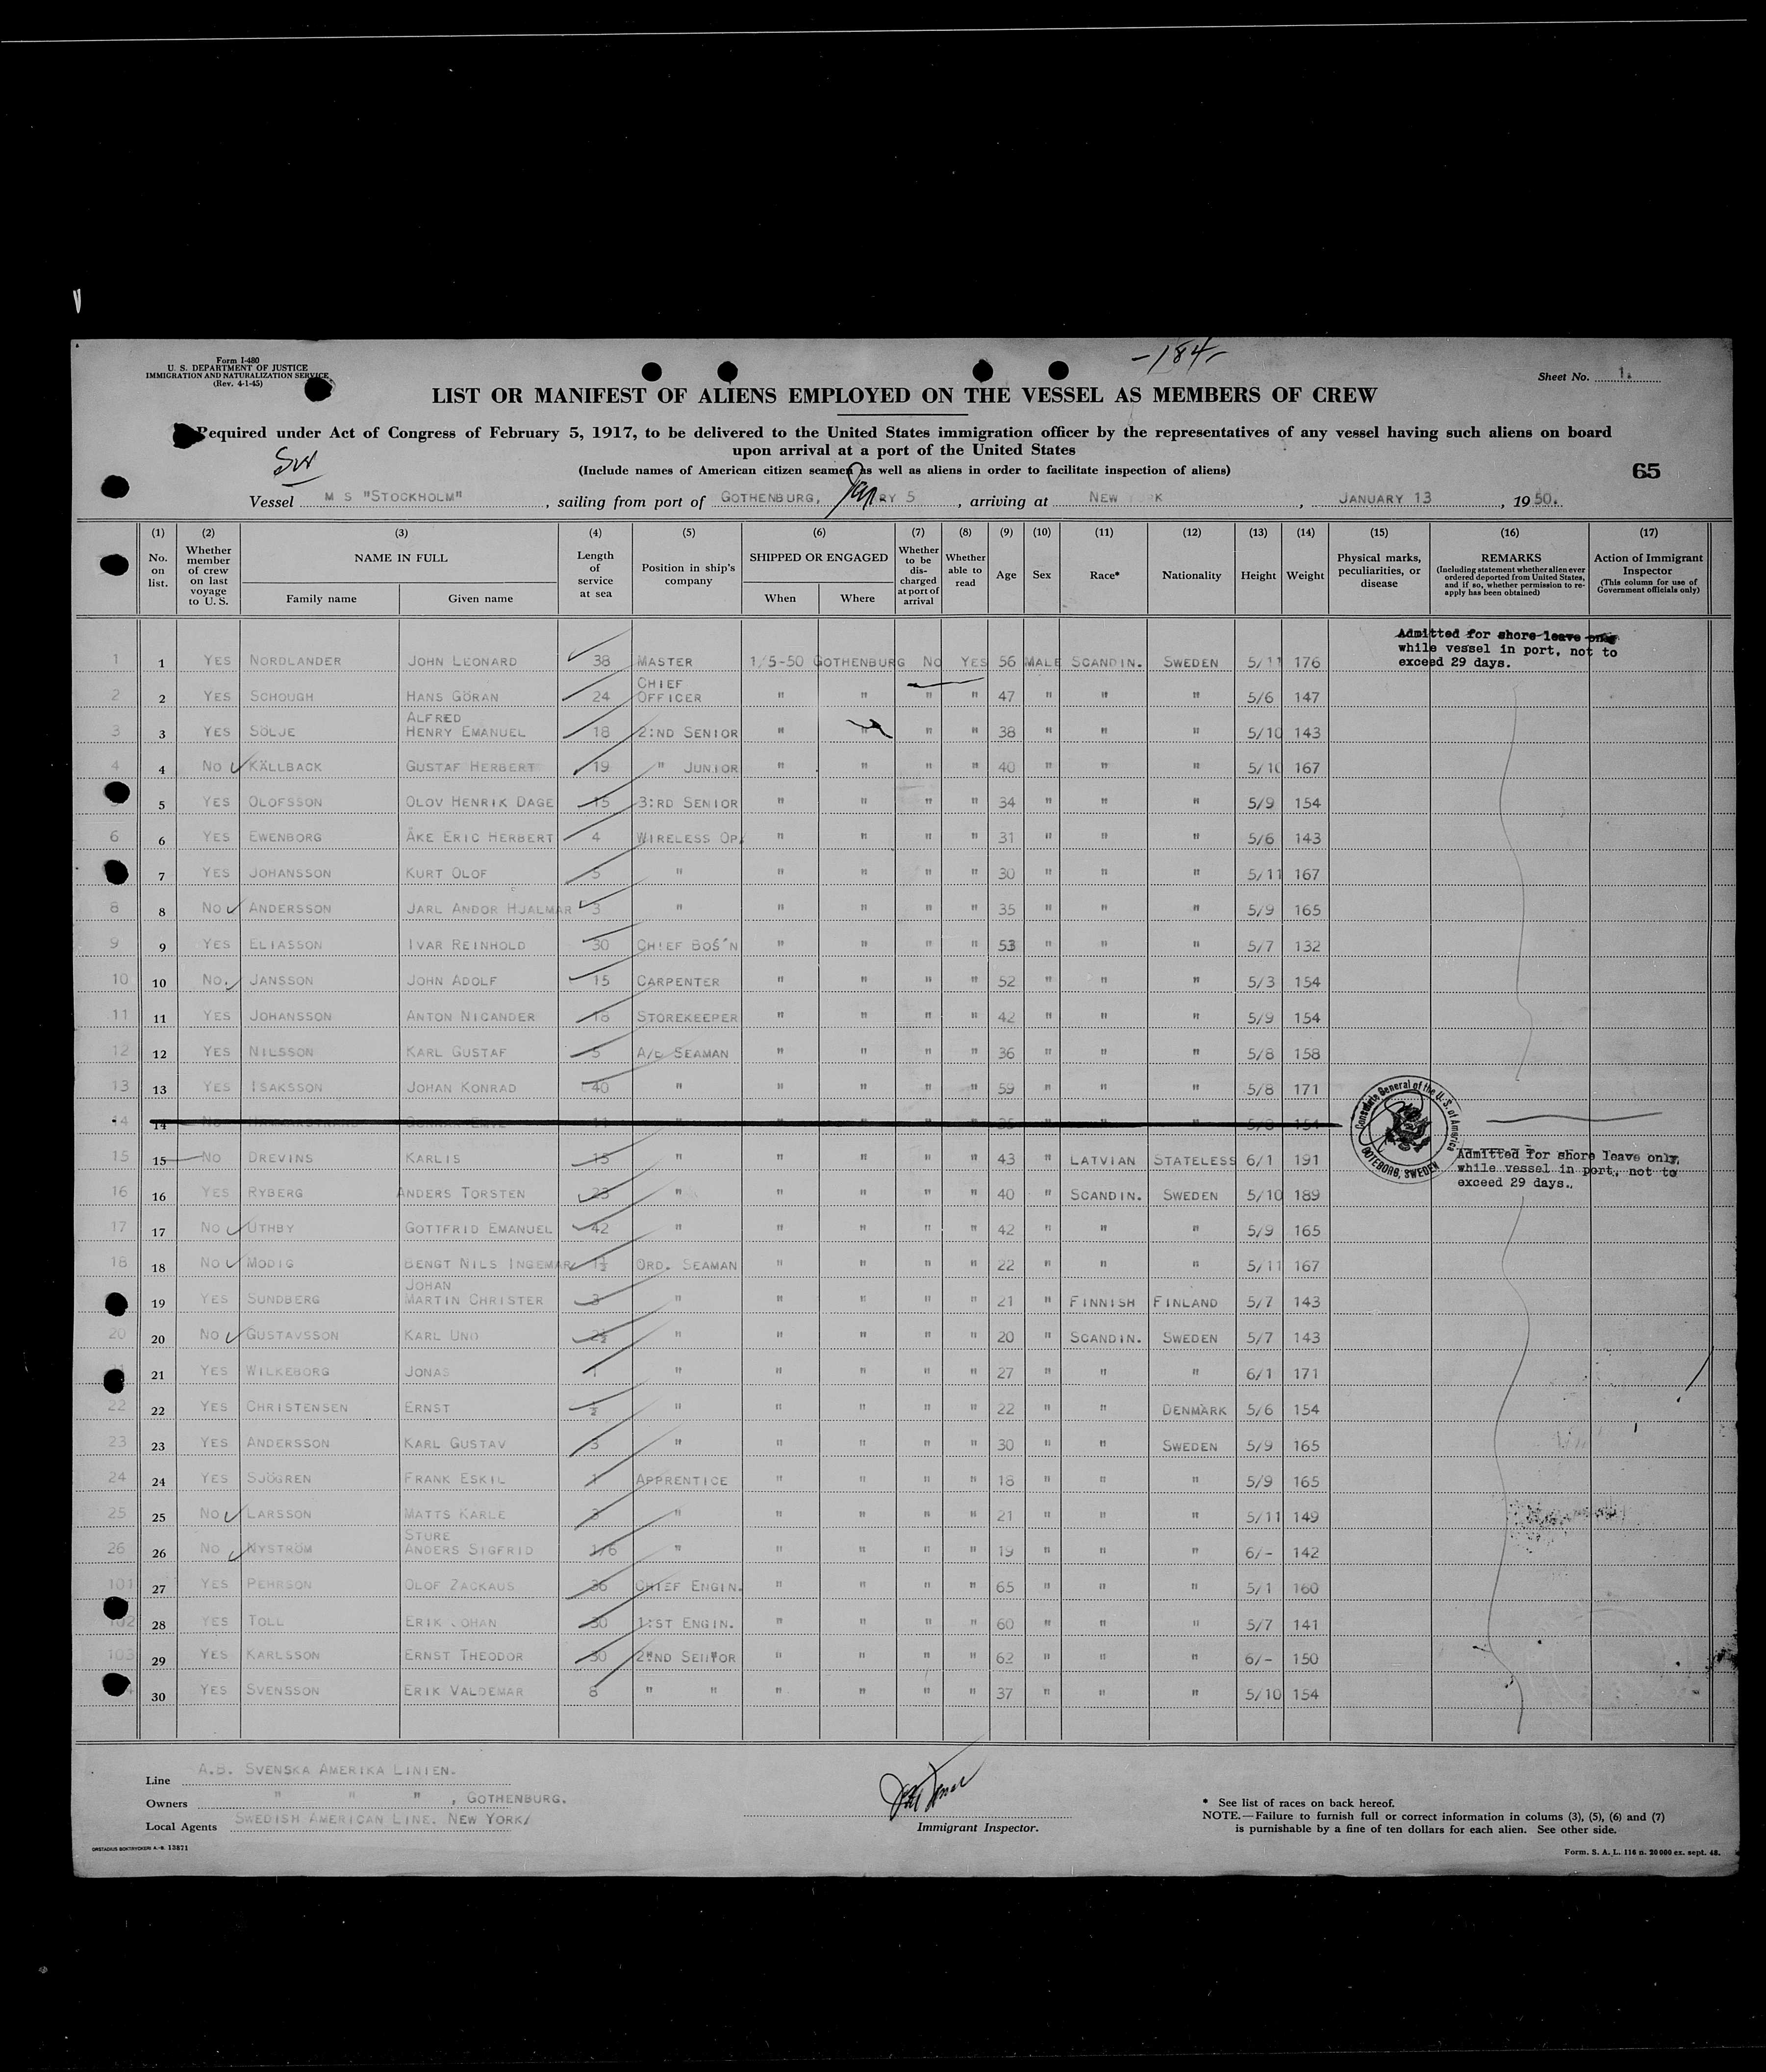 Form I-480
U. S. DEPARTMENT OF JUSTICE
IMMIGRATION AND NATURALIZATION SERVICE
(Rev. 4-1-45)
-184-
Sheet No. 1.
LIST OR MANIFEST OF ALIENS EMPLOYED ON THE VESSEL AS MEMBERS OF CREW
Required under Act of Congress of February 5, 1917, to be delivered to the United States immigration officer by the representatives of any vessel having such aliens on board
upon arrival at a port of the United States
(Include names of American citizen seamen as well as aliens in order to facilitate inspection of aliens)
65
Vessel M S "STOCKHOLM", sailing from port of GOTHENBURG, RY 5, arriving at NEW K, JANUARY 13, 1950.
(1) (2) (3) (4) (5) (6) (7) (8) (9) (10) (11) (12) (13) (14) (15) (16) (17)
No. on list. Whether member of crew on last voyage to U. S. NAME IN FULL Family name Given name Length of service at sea Position in ship's company SHIPPED OR ENGAGED When Where Whether to be discharged at port of arrival Whether able to read Age Sex Race* Nationality Height Weight Physical marks, peculiarities, or disease REMARKS (Including statement whether alien ever ordered deported from United States, and if so, whether permission to re-apply has been obtained) Action of Immigrant Inspector (This column for use of Government officials only)
Admitted for shore leave only
while vessel in port, not to
exceed 29 days.
1 1 YES NORDLANDER JOHN LEONARD 38 MASTER 1/5-50 GOTHENBURG NO YES 56 MALE SCANDIN. SWEDEN 5/11 176
2 2 YES SCHOUGH HANS GÖRAN 24 CHIEF OFFICER " " " " 47 " " " 5/6 147
3 3 YES SÖLJE ALFRED HENRY EMANUEL 18 2:ND SENIOR " " " " 38 " " " 5/10 143
4 4 NO KÄLLBACK GUSTAF HERBERT 19 " JUNIOR " " " " 40 " " " 5/10 167
5 YES OLOFSSON OLOV HENRIK DAGE 15 3:RD SENIOR " " " " 34 " " " 5/9 154
6 6 YES EWENBORG ÅKE ERIC HERBERT 4 WIRELESS OP. " " " " 31 " " " 5/6 143
7 YES JOHANSSON KURT OLOF 5 " " " " " 30 " " " 5/11 167
8 8 NO ANDERSSON JARL ANDOR HJALMAR 3 " " " " " 35 " " " 5/9 165
9 9 YES ELIASSON IVAR REINHOLD 30 CHIEF BOS'N " " " " 53 " " " 5/7 132
10 10 NO. JANSSON JOHN ADOLF 15 CARPENTER " " " " 52 " " " 5/3 154
11 11 YES JOHANSSON ANTON NICANDER 18 STOREKEEPER " " " " 42 " " " 5/9 154
12 12 YES NILSSON KARL GUSTAF 5 A/C SEAMAN " " " " 36 " " " 5/8 158
13 13 YES ISAKSSON JOHAN KONRAD 40 " " " " " 59 " " " 5/8 171
14 14
Consulate General of the U. S. of America
GÖTEBORG, SWEDEN
15 15 NO DREVINS KARLIS 15 " " " " " 43 " LATVIAN STATELESS 6/1 191
Admitted for shore leave only,
while vessel in port, not to
exceed 29 days.
16 16 YES RYBERG ANDERS TORSTEN 23 " " " " " 40 " SCANDIN. SWEDEN 5/10 189
17 17 NO UTHBY GOTTFRID EMANUEL 42 " " " " " 42 " " " 5/9 165
18 18 NO MODIG BENGT NILS INGEMAR 1½ ORD. SEAMAN " " " " 22 " " " 5/11 167
19 YES SUNDBERG JOHAN MARTIN CHRISTER 3 " " " " " 21 " FINNISH FINLAND 5/7 143
20 20 NO GUSTAVSSON KARL UNO 2½ " " " " " 20 " SCANDIN. SWEDEN 5/7 143
21 YES WILKEBORG JONAS 1 " " " " " 27 " " " 6/1 171
22 22 YES CHRISTENSEN ERNST ½ " " " " " 22 " " DENMARK 5/6 154
23 23 YES ANDERSSON KARL GUSTAV 3 " " " " " 30 " " SWEDEN 5/9 165
24 24 YES SJÖGREN FRANK ESKIL 1 APPRENTICE " " " " 18 " " " 5/9 165
25 25 NO LARSSON MATTS KARLE 3 " " " " " 21 " " " 5/11 149
26 26 NO NYSTRÖM STURE ANDERS SIGFRID 1/6 " " " " " 19 " " " 6/- 142
101 27 YES PEHRSON OLOF ZACKAUS 36 CHIEF ENGIN. " " " " 65 " " " 5/1 160
102 28 YES TOLL ERIK JOHAN 30 1:ST ENGIN. " " " " 60 " " " 5/7 141
103 29 YES KARLSSON ERNST THEODOR 30 2:ND SENIOR " " " " 62 " " " 6/- 150
30 YES SVENSSON ERIK VALDEMAR 8 " " " " " " 37 " " " 5/10 154
Line A.B. SVENSKA AMERIKA LINIEN.
Owners " " " , GOTHENBURG.
Local Agents SWEDISH AMERICAN LINE. NEW YORK/
Immigrant Inspector.
* See list of races on back hereof.
NOTE.—Failure to furnish full or correct information in colums (3), (5), (6) and (7)
is punishable by a fine of ten dollars for each alien. See other side.
ORSTADIUS BOKTRYCKERI A.-B. 13871
Form. S. A. L. 116 n. 20 000 ex. sept. 48.